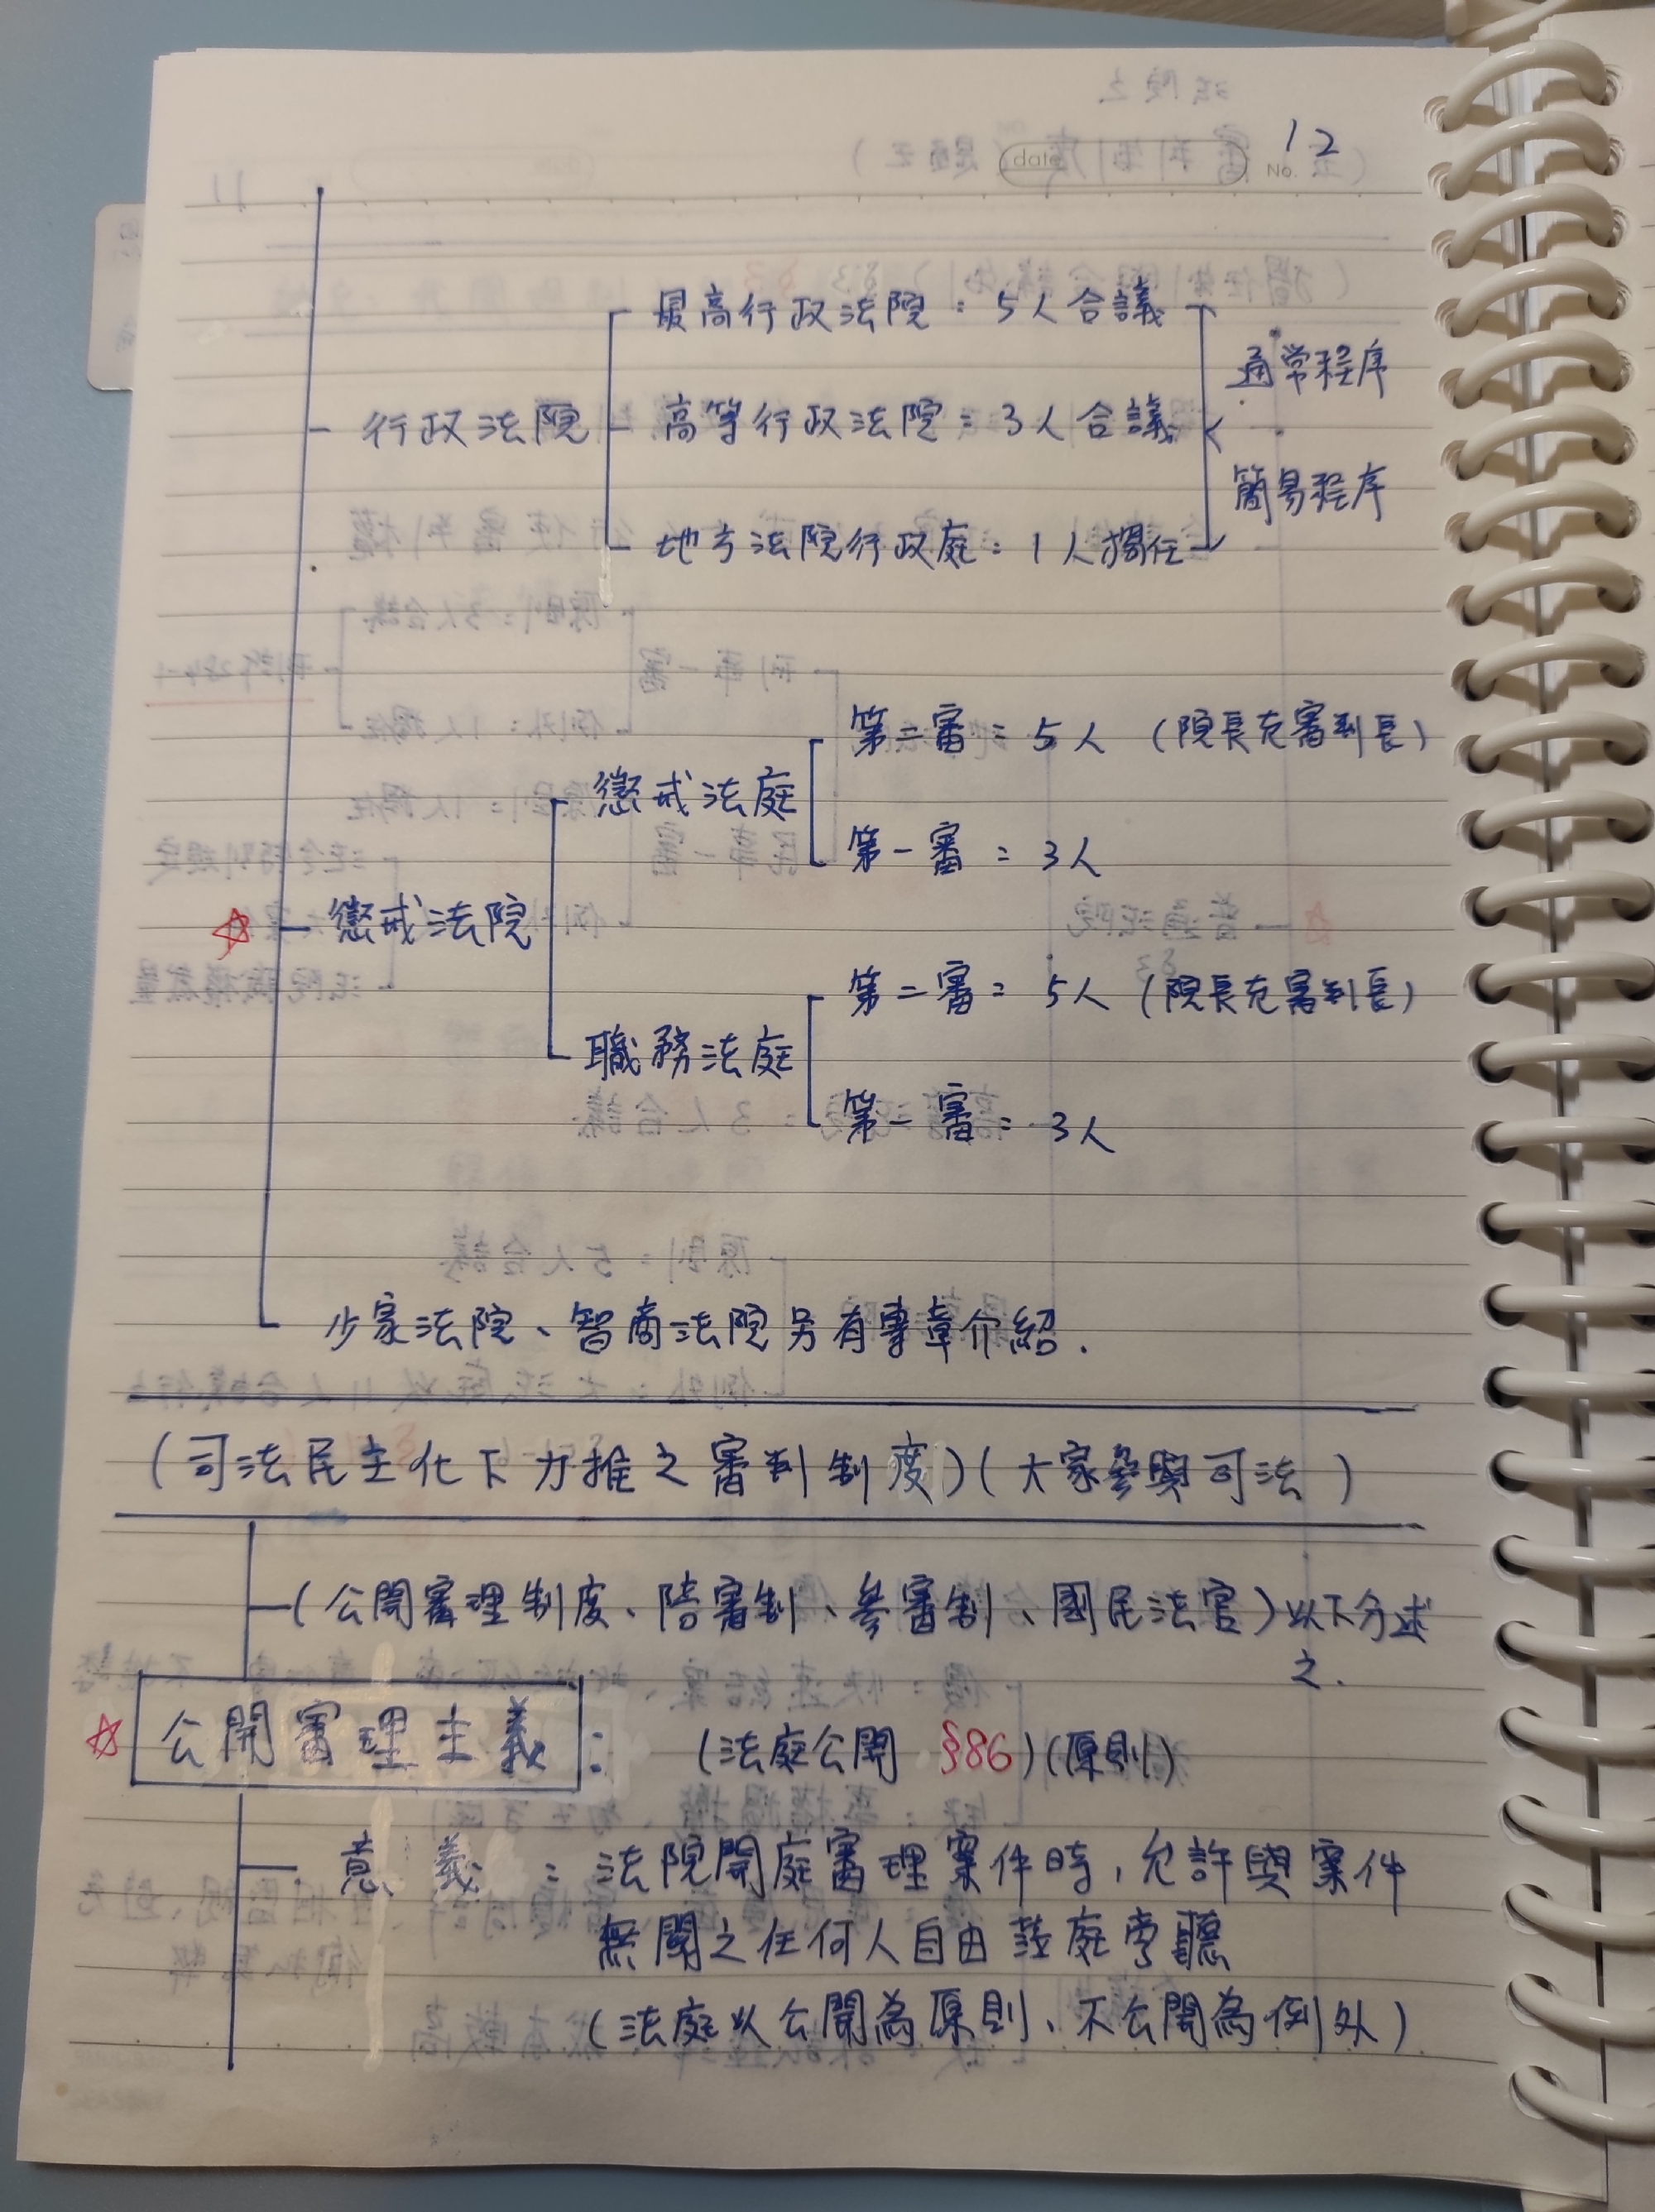 12
date
No.
最高行政法院：5人合議
通常程序
行政法院
高等行政法院：3人合議
簡易程序
地方法院行政庭：1人獨任
第二審：5人（院長充審判長）
懲戒法庭
第一審：3人
☆懲戒法院
第二審：5人（院長充審判長）
職務法庭
第一審：3人
少家法院、智商法院另有專章介紹.
（司法民主化下力推之審判制度）（大家參與司法）
（公開審理制度、陪審制、參審制、國民法官）以下分述
之.
☆公開審理主義：（法庭公開 §86）（原則）
意義：法院開庭審理案件時，允許與案件
無關之任何人自由蒞庭旁聽
（法庭以公開為原則、不公開為例外）